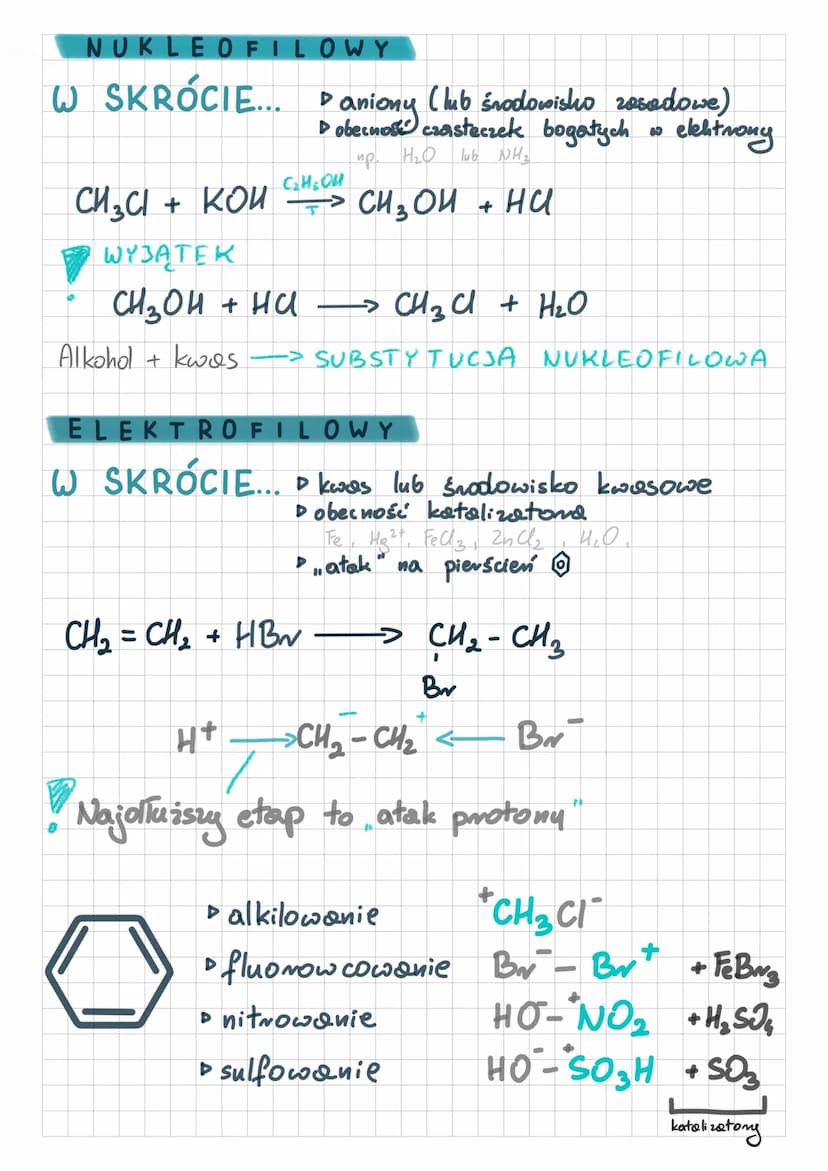 NUKLEOFILOWY
W SKRÓCIE... ▷ aniony (lub środowisko zasadowe)
▷ obecność cząsteczek bogatych w elektrony
np. H₂O lub NH₃
CH₃Cl + KOH C₂H₅OH→T CH₃OH + HCl
! WYJĄTEK
CH₃OH + HCl → CH₃Cl + H₂O
Alkohol + kwas → SUBSTYTUCJA NUKLEOFILOWA
ELEKTROFILOWY
W SKRÓCIE... ▷ kwas lub środowisko kwasowe
▷ obecność katalizatora
Fe, Hg²⁺, FeCl₃, ZnCl₂, H₂O,
▷ „atak" na pierścień
CH₂ = CH₂ + HBr → CH₂ - CH₃
Br
H⁺ → CH₂⁻ - CH₂⁺ ← Br⁻
! Najdłuższy etap to „atak protony"
▷ alkilowanie ⁺CH₃Cl⁻
▷ fluorowcowanie Br⁻ - Br⁺ + FeBr₃
▷ nitrowanie HO⁻ - ⁺NO₂ + H₂SO₄
▷ sulfowanie HO⁻ - ⁺SO₃H + SO₃
katalizatory